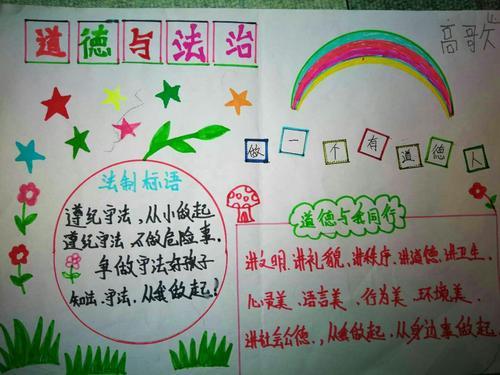 道德与法治
高歌
做一个有道德人
法制标语
遵纪守法，从小做起
遵纪守法，不做危险事.
争做守法好孩子
知法、守法、从我做起！
道德与我同行
讲文明、讲礼貌、讲秩序、讲道德、讲卫生.
心灵美、语言美、行为美、环境美、
讲社会公德.，从我做起、从身边事做起